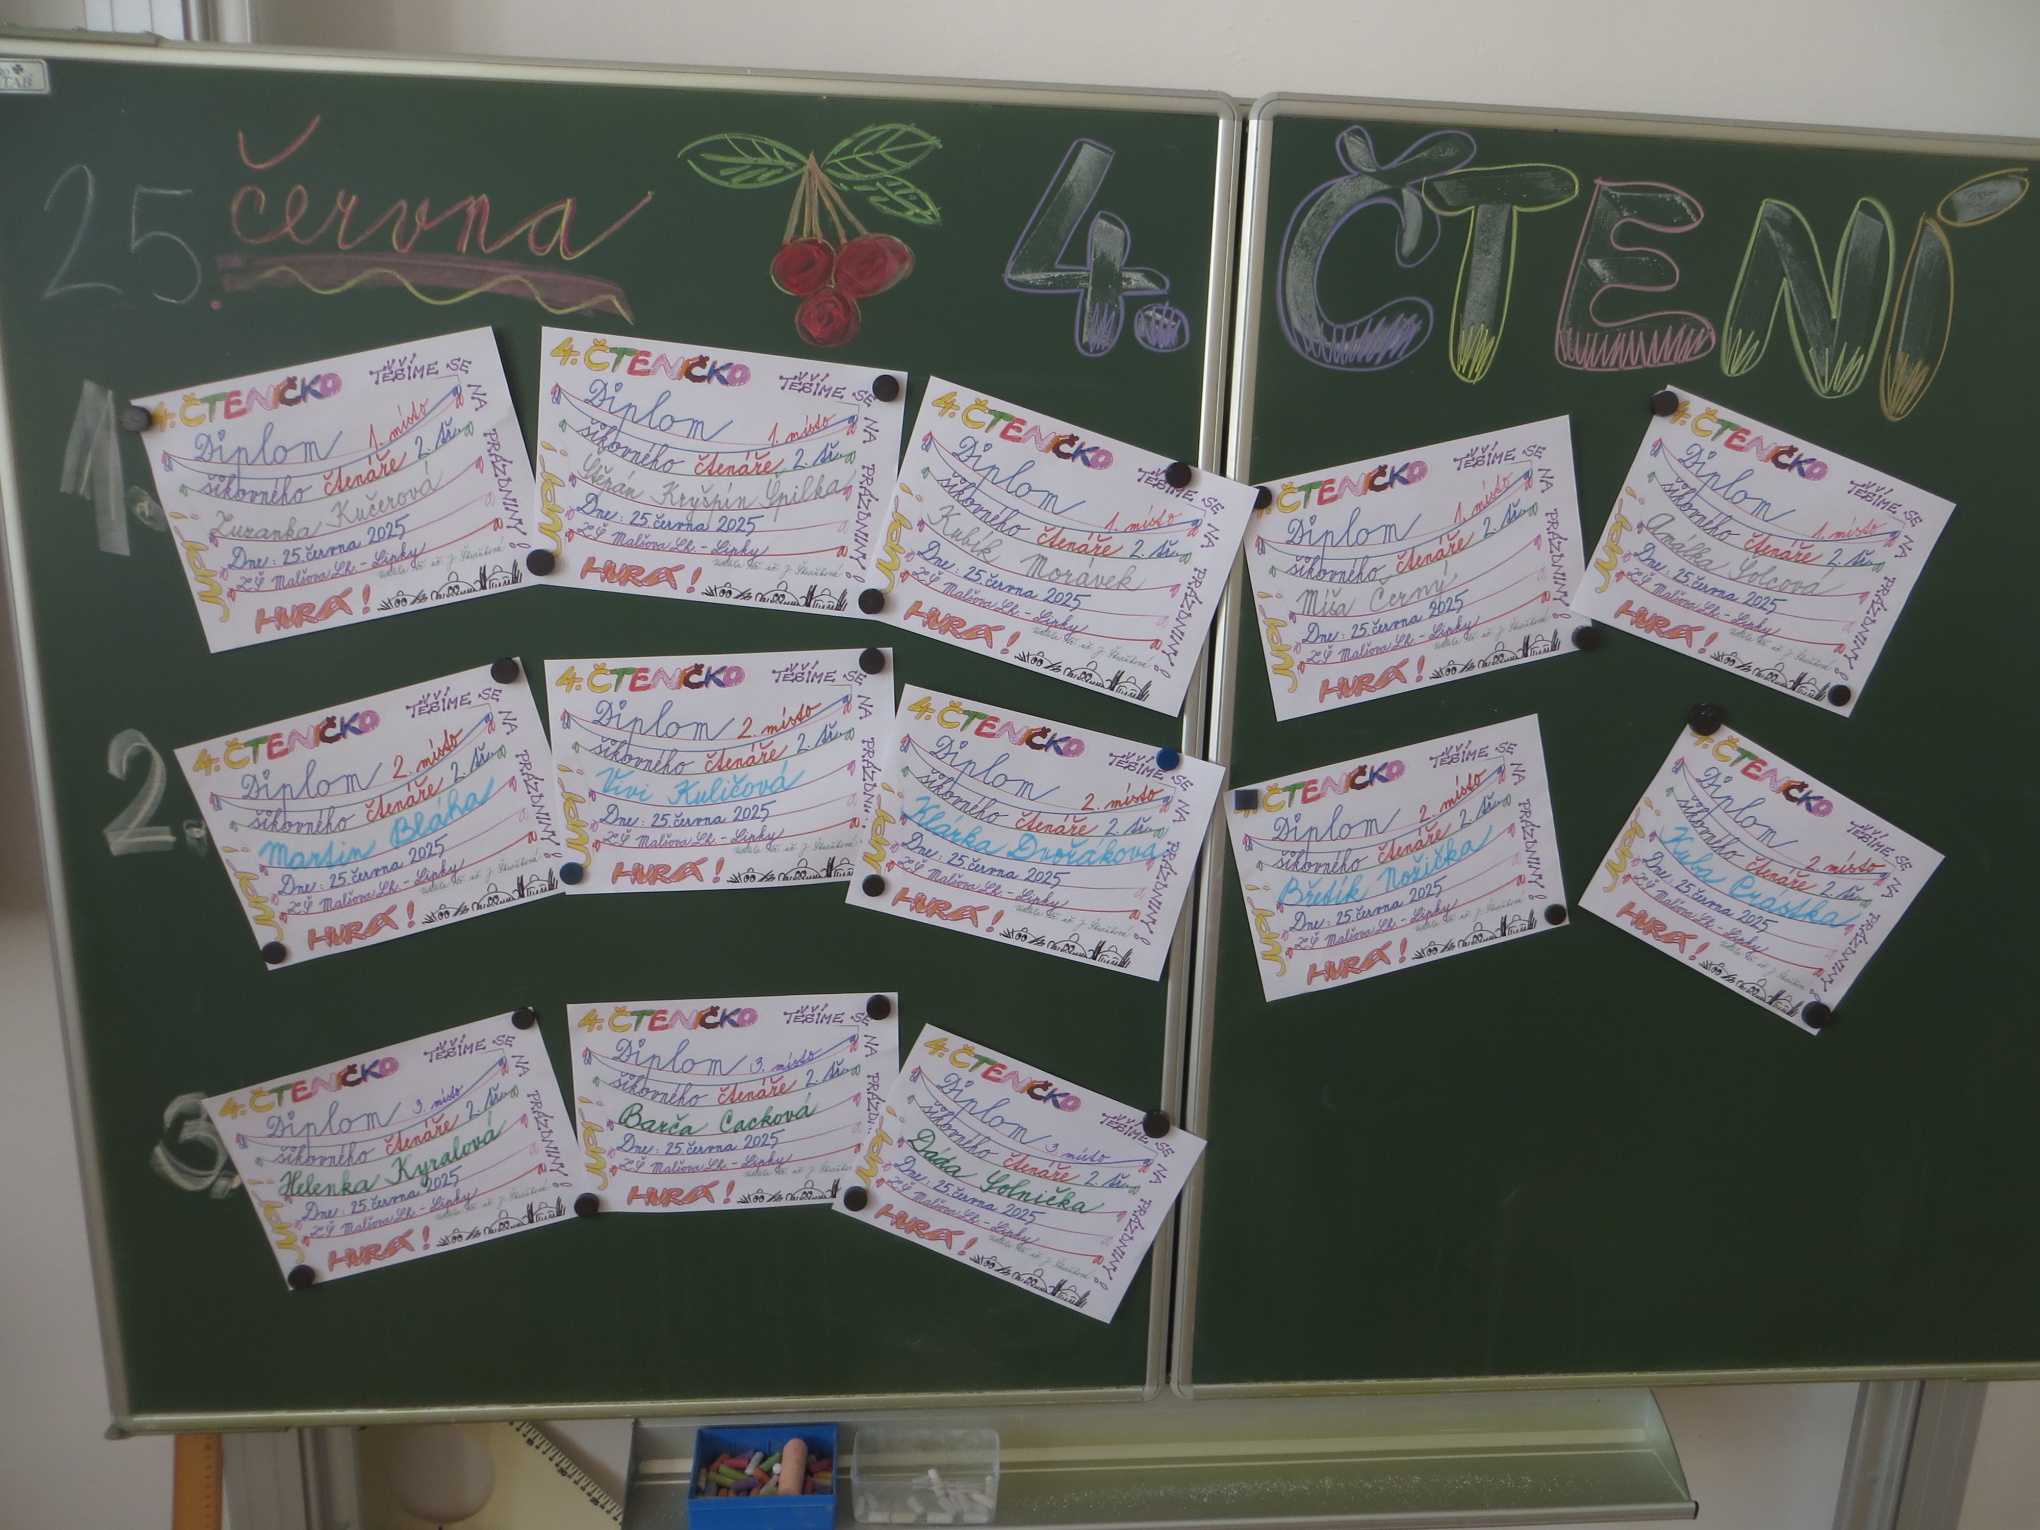 TAB
25. června
4. ČTENÍ
1.
4. ČTENÍČKO
TĚŠÍME SE NA PRÁZDNINY!
Diplom 1. místo
šikovného čtenáře 2. tř.
Zuzanka Kučerová
Dne: 25. června 2025
ZŠ Malšova Lh. - Lipky
HURÁ!
4. ČTENÍČKO
TĚŠÍME SE NA PRÁZDNINY!
Diplom 1. místo
šikovného čtenáře 2. tř.
Kryšpín
Dne: 25. června 2025
ZŠ Malšova Lh. - Lipky
HURÁ!
4. ČTENÍČKO
TĚŠÍME SE NA PRÁZDNINY!
Diplom 1. místo
šikovného čtenáře 2. tř.
Kubík Morávek
Dne: 25. června 2025
ZŠ Malšova Lh. - Lipky
HURÁ!
4. ČTENÍČKO
TĚŠÍME SE NA PRÁZDNINY!
Diplom 1. místo
šikovného čtenáře 2. tř.
Míša Černý
Dne: 25. června 2025
ZŠ Malšova Lh. - Lipky
HURÁ!
4. ČTENÍČKO
TĚŠÍME SE NA PRÁZDNINY!
Diplom 1. místo
šikovného čtenáře 2. tř.
Amálka Solcová
Dne: 25. června 2025
ZŠ Malšova Lh. - Lipky
HURÁ!
2.
4. ČTENÍČKO
TĚŠÍME SE NA PRÁZDNINY!
Diplom 2. místo
šikovného čtenáře 2. tř.
Martin Bláha
Dne: 25. června 2025
ZŠ Malšova Lh. - Lipky
HURÁ!
4. ČTENÍČKO
TĚŠÍME SE NA PRÁZDNI
Diplom 2. místo
šikovného čtenáře 2. tř.
Vivi Kuličová
Dne: 25. června 2025
ZŠ Malšova Lh. - Lipky
HURÁ!
4. ČTENÍČKO
TĚŠÍME SE NA PRÁZDNINY!
Diplom 2. místo
šikovného čtenáře 2. tř.
Klárka Dvořáková
Dne: 25. června 2025
ZŠ Malšova Lh. - Lipky
HURÁ!
ČTENÍČKO
TĚŠÍME SE NA PRÁZDNINY!
Diplom 2. místo
šikovného čtenáře 2. tř.
Břetík Nožička
Dne: 25. června 2025
ZŠ Malšova Lh. - Lipky
HURÁ!
ČTENÍČKO
TĚŠÍME SE NA PRÁZDNINY!
Diplom 2. místo
šikovného čtenáře 2. tř.
Kuba Prastka
Dne: 25. června 2025
ZŠ Malšova Lh. - Lipky
HURÁ!
3.
4. ČTENÍČKO
TĚŠÍME SE NA PRÁZDNINY!
Diplom 3. místo
šikovného čtenáře 2. tř.
Helenka Kyralová
Dne: 25. června 2025
ZŠ Malšova Lh. - Lipky
HURÁ!
4. ČTENÍČKO
TĚŠÍME SE NA PRÁZDNI
Diplom 3. místo
šikovného čtenáře 2. tř.
Barča Cacková
Dne: 25. června 2025
ZŠ Malšova Lh. - Lipky
HURÁ!
4. ČTENÍČKO
TĚŠÍME SE NA PRÁZDNINY!
Diplom 3. místo
šikovného čtenáře 2. tř.
Dáda Solnička
Dne: 25. června 2025
ZŠ Malšova Lh. - Lipky
HURÁ!